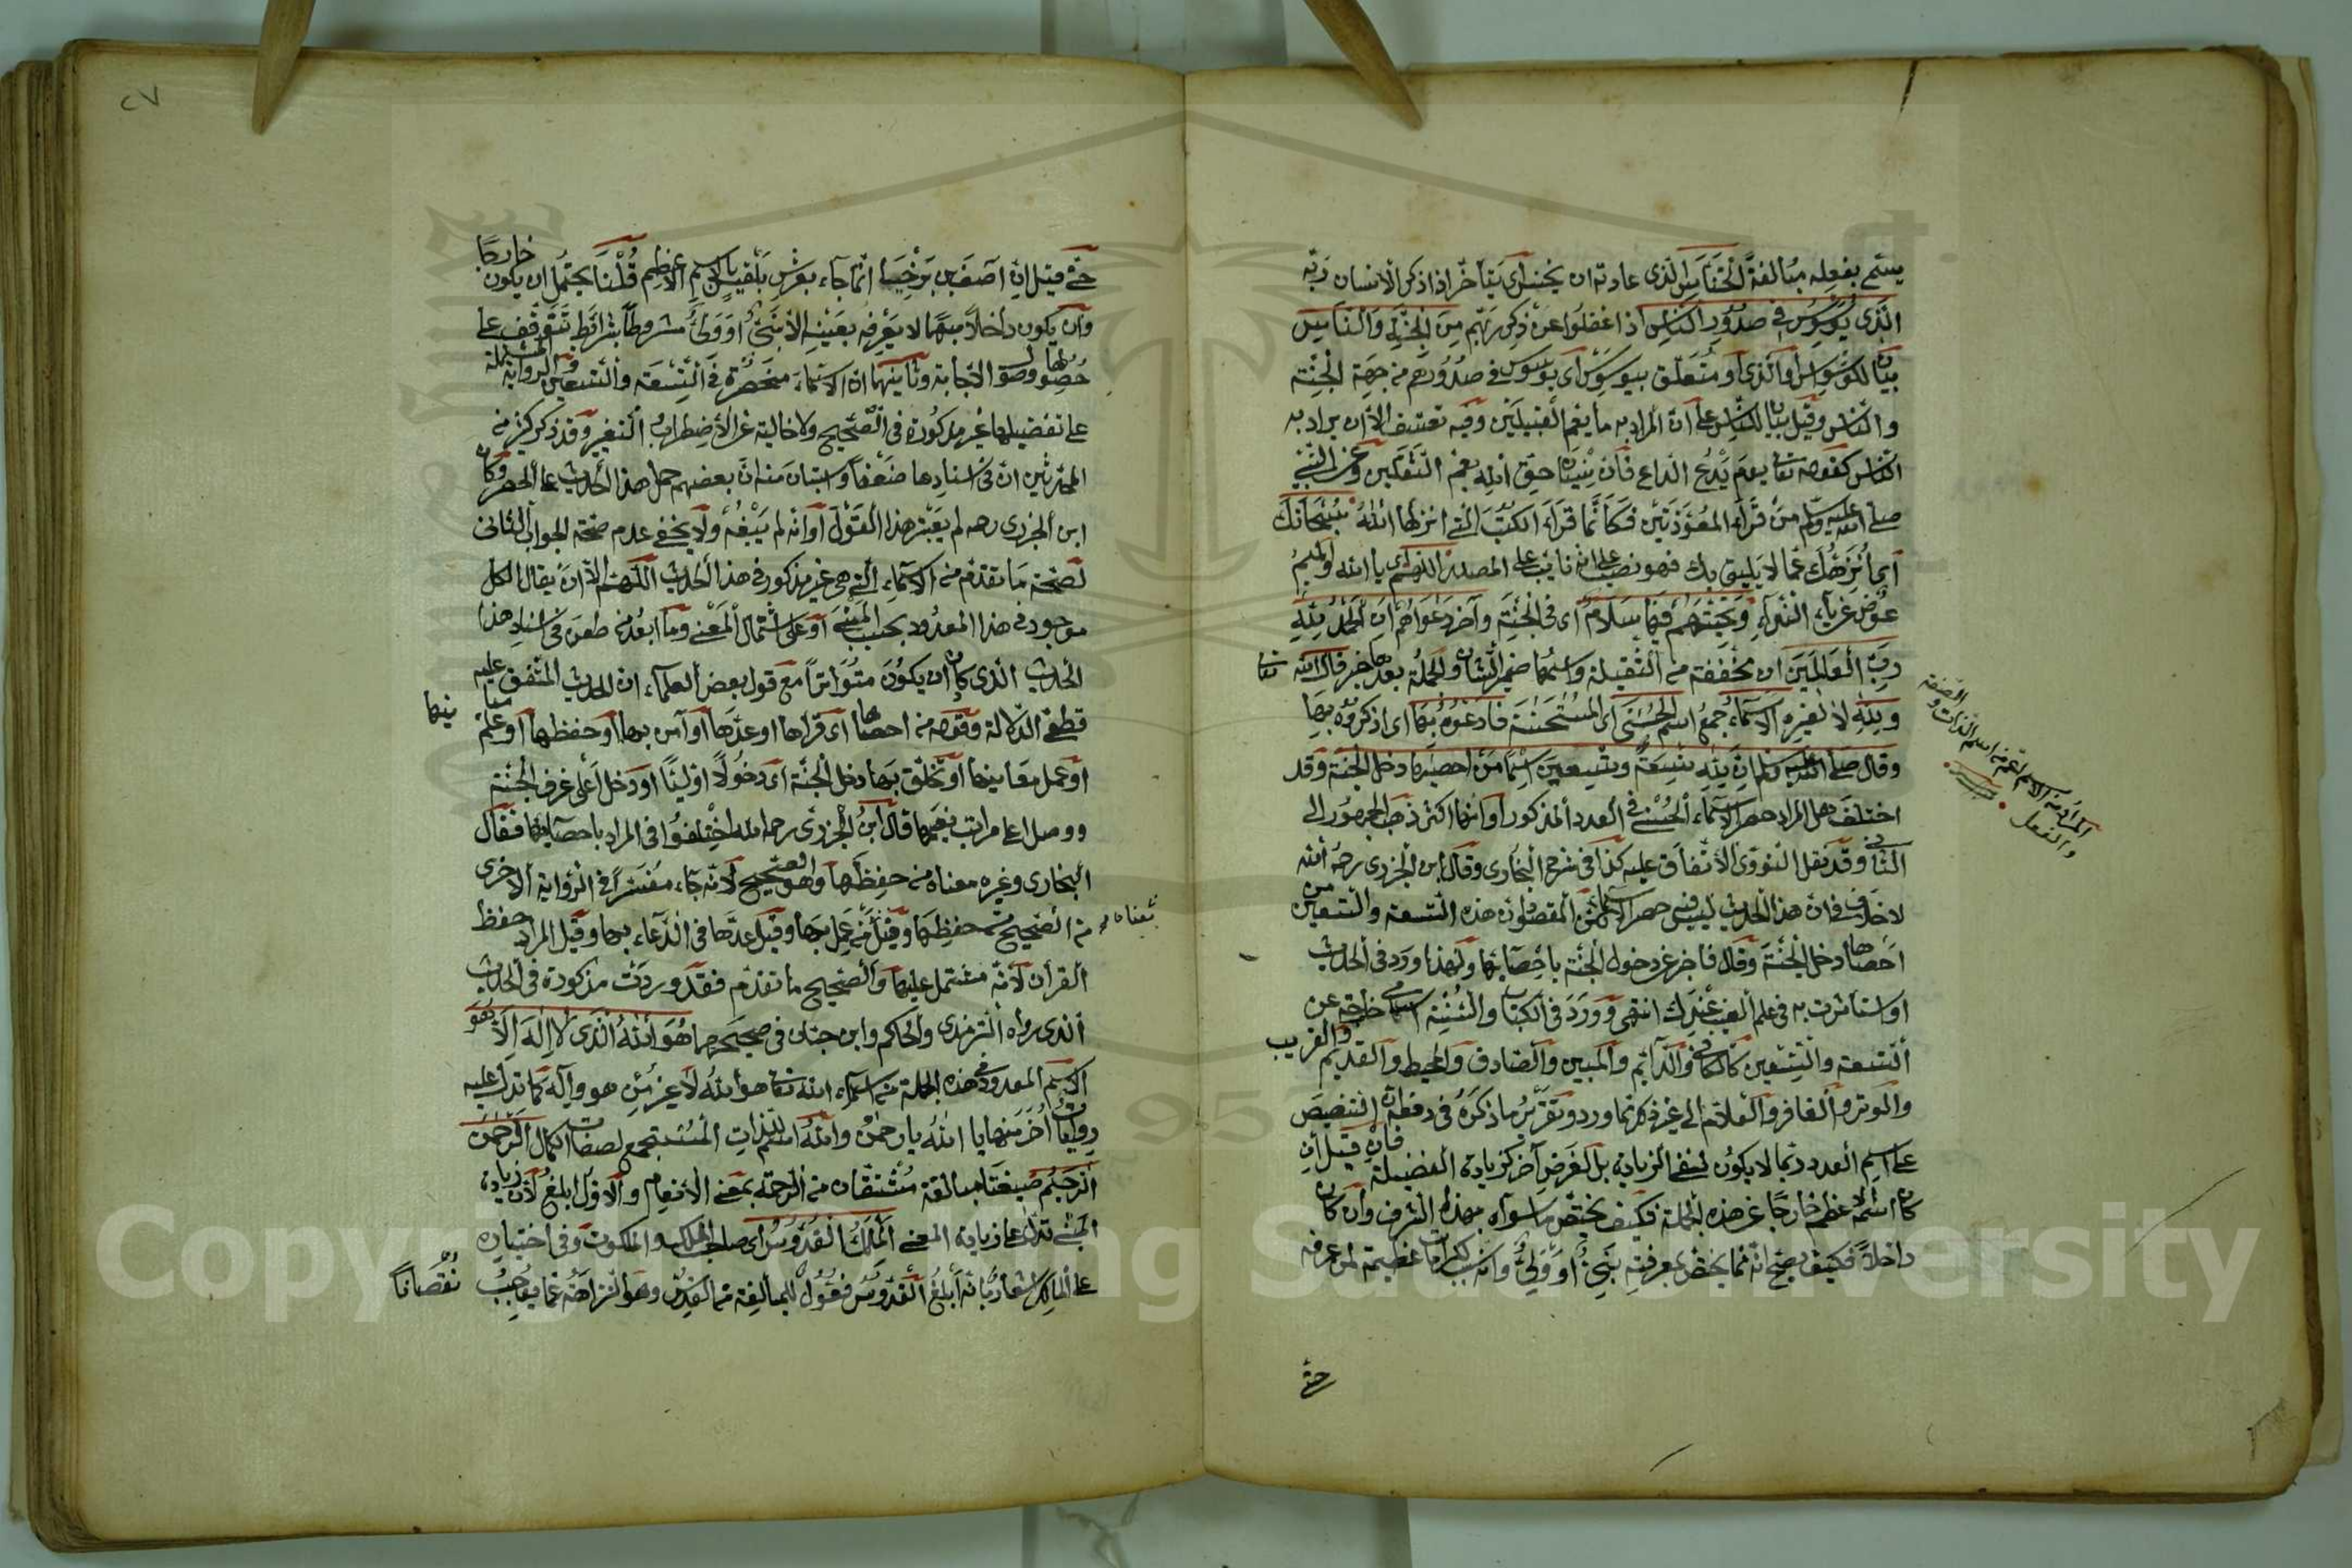 يسمى بفعله مبالغة الخناس الذى عادته ان يخنس اى يتأخر اذا ذكر الانسان ربه
الذى يوسوس فى صدور الناس اذا غفلوا عن ذكر ربهم من الجنة والناس
بيان للوسواس او الذى او متعلق بيوسوس اى يوسوس فى صدورهم من جهة الجنة
والناس وقيل بيان للناس على ان المراد به ما يعم القبيلين وفيه تعسف الا ان يراد به
الناس كقوله تعا يوم يدع الداع فان نسيان حق الله يعم الثقلين وعن النبى
صلى الله عليه وسلم من قرأ المعوذتين فكأنما قرأ الكتب التى انزلها الله سبحانك
اى أنزهك عما لا يليق بك فهو نصب على انه نائب على المصدر اللهم اى يا الله والميم
عوض عن ياء النداء وتحيتهم فيها سلام اى فى الجنة وآخر دعواهم ان الحمد لله
رب العالمين ان مخففة من الثقيلة واسمها ضمير الشان والجملة بعدها خبر قال الله تعا
ولله لا لغيره الاسماء جمع اسم الحسنى اى المستحسنة فادعوه بها اى اذكروه بها
وقال صلى الله عليه وسلم ان لله تسعة وتسعين اسما من احصيها دخل الجنة وقد
اختلف هل المراد حصر الاسماء الحسنى فى العدد المذكور او انها اكثر ذهب الجمهور الى
الثانى وقد نقل النووى الاتفاق عليه كذا فى شرح البخارى وقال ابن الجزرى رحمه الله
لا خلاف فى ان هذا الحديث ليس فيه حصر الاسماء المقصود ان هذه التسعة والتسعين من
احصاها دخل الجنة وقال فاخبر عن دخول الجنة باحصائها ولهذا ورد فى الحديث
او استأثرت به فى علم الغيب عندك انتهى وورد فى الكتاب والسنة اسامى خارجة عن
التسعة والتسعين كالكافى والدائم والمبين والصادق والمحيط والقديم والقريب
والوتر والغافر والعلام الى غير ذلك مما ورد وتقرير ما ذكره فى دفعه ان التنصيص
على اسم العدد ربما لا يكون لنفى الزيادة بل لغرض آخر كزيادة الفضيلة فان قيل ان
كان اسمه الاعظم خارجا عن هذه الجملة فكيف يختص ما سواه بهذا الشرف وان كان
داخلا فكيف يصح انه مما يختص بمعرفته نبى او ولى وانه سبب كرامات عظيمة لمن عرفه
حتى
المراد من الاسم اعم من اسم الذات والصفة
والفعل
٢٧
حتى قيل ان آصف بن برخيا انما جاء بعرش بلقيس بالاسم الاعظم قلنا يحتمل ان يكون خارجا
وان يكون داخلا مبهما لا يعرفه بعينه الا نبى او ولى مشروطا بشرائط تتوقف على
حصولها وصول الاجابة وثانيهما ان الاسماء منحصرة فى التسعة والتسعين والرواية المشتملة
على تفصيلها غير مذكورة فى الصحيح ولا خالية عن الاضطراب والتغير وقد ذكر كثير من
المحدثين ان فى اسنادها ضعفا واستبان منه ان بعضهم حمل هذا الحديث على الحصر وكان
ابن الجزرى رحه لم يعتبر هذا القول او انه لم يبلغه ولا يخفى عدم صحة الجواب الثانى
لصحة ما تقدم من الاسماء التى هى غير مذكور فى هذا الحديث اللهم الا ان يقال الكل
موجود فى هذا المعدود بحسب المبنى او على اشتمال المعنى وما ابعد من طعن فى اسناد هذا
الحديث الذى كان ان يكون متواترا مع قول بعض العلماء ان الحديث المتفق عليه
قطعى الدلالة وقوله من احصاها اى قرأها او عدها او آمن بها او حفظها او علم معانيها
او عمل معانيها او تخلق بها دخل الجنة اى دخولا اوليا او دخل اعلى غرف الجنة
ووصل اعلى مراتب نعيمها قال ابن الجزرى رحمه الله اختلفوا فى المراد باحصائها فقال
البخارى وغيره معناه من حفظها وهو الصحيح لانه جاء مفسرا فى الرواية الاخرى
من الصحيح من حفظها وقيل من عمل بها وقيل عدها فى الدعاء بها وقيل المراد حفظ
بمعناه
القرآن لانه مشتمل عليها والصحيح ما تقدم فقد وردت مذكورة فى الحديث
الذى رواه الترمذى والحاكم وابن حبان فى صحيحهما هو الله الذى لا اله الا هو
الاسم المعدود فى هذه الجملة من اسماء الله تعا هو الله لا غير من هو واله كما تدل عليه
روايات أخر منها يا الله يا رحمن والله اسم للذات المستجمع لصفات الكمال الرحمن
الرحيم صيغتا مبالغة مشتقان من الرحمة بمعنى الانعام والاول ابلغ لان زيادة
المبنى تدل على زيادة المعنى الملك القدوس اى صاحب الملك والملكوت وفى اختياره
على المالك اشعار بانه ابلغ القدوس فعول للمبالغة من القدس وهو النزاهة عما يوجب نقصانا